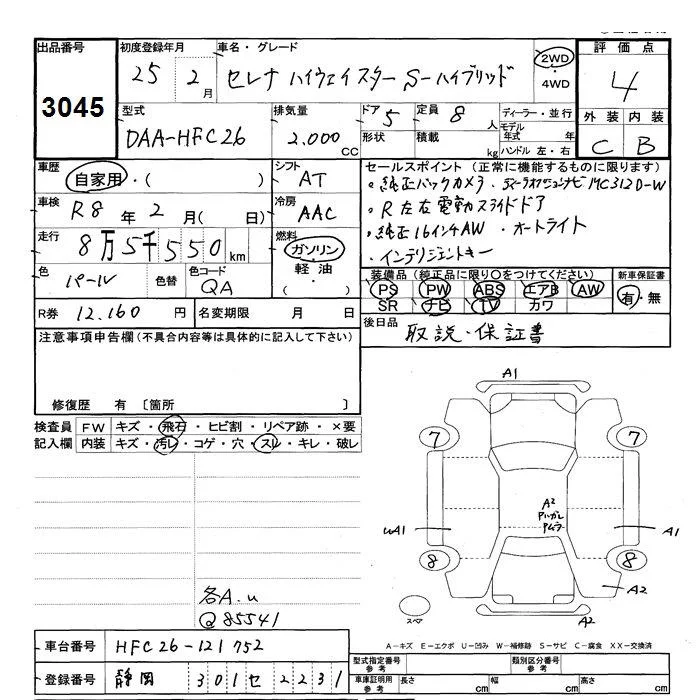 出品番号 初度登録年月 車名・グレード 評価点
3045 25年 2月 セレナ ハイウェイスター S-ハイブリッド 2WD・4WD 4
型式 排気量 ドア 5 定員 8人 ディーラー・並行 外装 内装
DAA-HFC26 2.000 CC 形状 積載 kg モデル年式 年 ハンドル 左・右 C B
車歴 自家用・( ) シフト AT セールスポイント (正常に機能するものに限ります)
・純正バックカメラ ・ディーラオプションナビMC312D-W
車検 R8年 2月( 日) 冷房 AAC ・R左右電動スライドドア
走行 8万5千550km 燃料 ガソリン 軽油・( ) ・純正16インチAW ・オートライト
・インテリジェントキー
色 パール 色替 色コード QA 装備品 (純正品に限り○をつけてください) 新車保証書
PS PW ABS エアB AW 有・無
SR ナビ TV カワ
R券 12.160円 名変期限 月 日 後日品 取説・保証書
注意事項申告欄 (不具合内容等は具体的に記入して下さい)
修復歴 有 〔箇所 〕
検査員 FW キズ・飛石・ヒビ割・リペア跡・×要
記入欄 内装 キズ・汚レ・コゲ・穴・スレ・キレ・破レ
A1
7 7
A2
uA1 A1
8 8
A2
スペア A2
各A.u
Q85541
A-キズ E-エクボ U-凹み W-補修跡 S-サビ C-腐食 XX-交換済
車台番号 HFC26-121752 型式指定番号 参考 類別区分番号 参考
登録番号 静岡 301 セ 2231 車庫証明用 参考 長さ cm 幅 cm 高さ cm